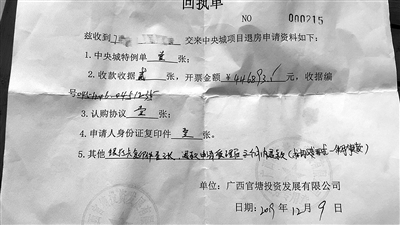 回执单
NO 000215
兹收到 交来中央城项目退房申请资料如下：
1.中央城特例单 壹 张；
2.收款收据 张，开票金额 ￥446893.5 元，收据编
号
3.认购协议 壹 张；
4.申请人身份证复印件 壹 张。
5.其他 银行卡复印件壹张，
单位：广西官塘投资发展有限公司
日期：2019年12月9日